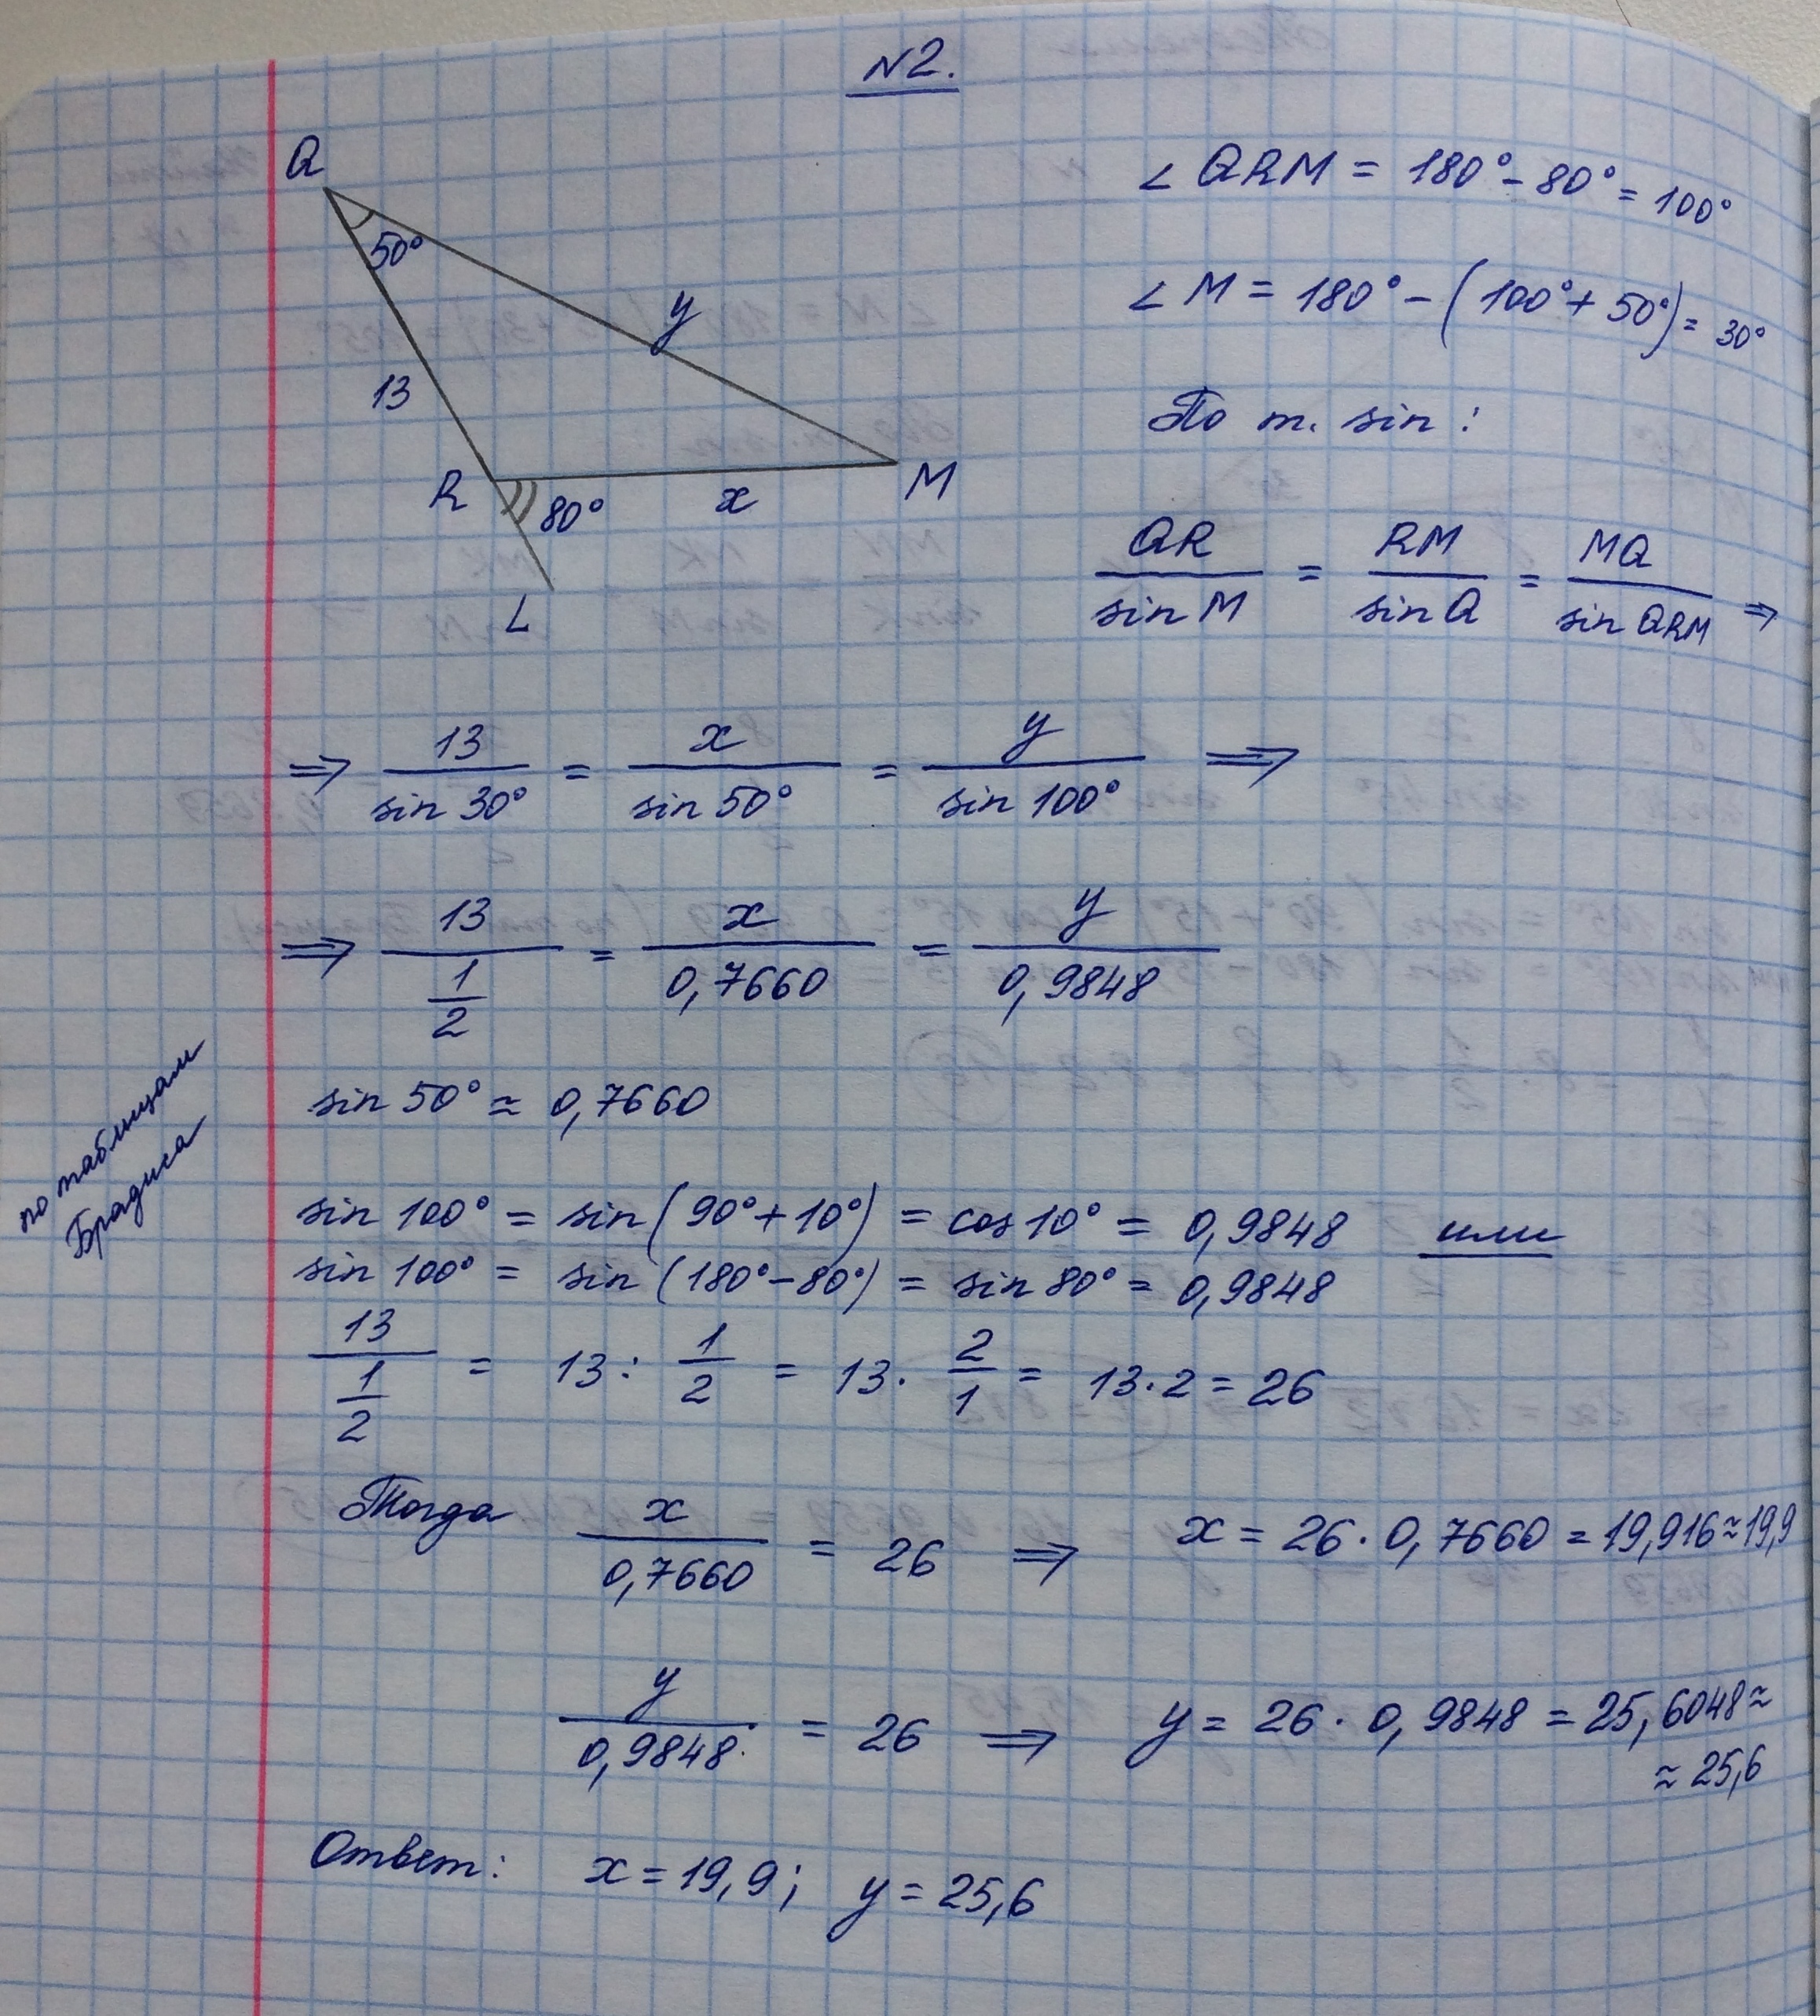 N2.
Q
50°
y
13
R
80°
x
M
L
∠ QRM = 180° - 80° = 100°
∠ M = 180° - (100° + 50°) = 30°
По т. sin :
QR/sin M = RM/sin Q = MQ/sin QRM ⇒
⇒ 13/sin 30° = x/sin 50° = y/sin 100° ⇒
⇒ 13/(1/2) = x/0,7660 = y/0,9848
по таблицам
Брадиса
sin 50° ≈ 0,7660
sin 100° = sin (90° + 10°) = cos 10° = 0,9848 или
sin 100° = sin (180° - 80°) = sin 80° = 0,9848
13/(1/2) = 13 : 1/2 = 13 · 2/1 = 13 · 2 = 26
Тогда x/0,7660 = 26 ⇒ x = 26 · 0,7660 = 19,916 ≈ 19,9
y/0,9848 = 26 ⇒ y = 26 · 0,9848 = 25,6048 ≈
≈ 25,6
Ответ: x = 19,9; y = 25,6